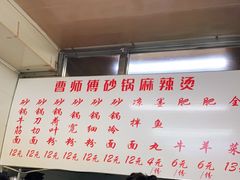 曹师傅砂锅麻辣烫
砂锅牛筋面 12元
砂锅刀切面 12元
砂锅叶面 12元
砂锅宽粉 12元
砂锅细粉 12元
砂锅冷面 12元
拌面 12元
鱼丸 4元/份
肥牛 6元/份
肥羊 6元/份
金菜 13